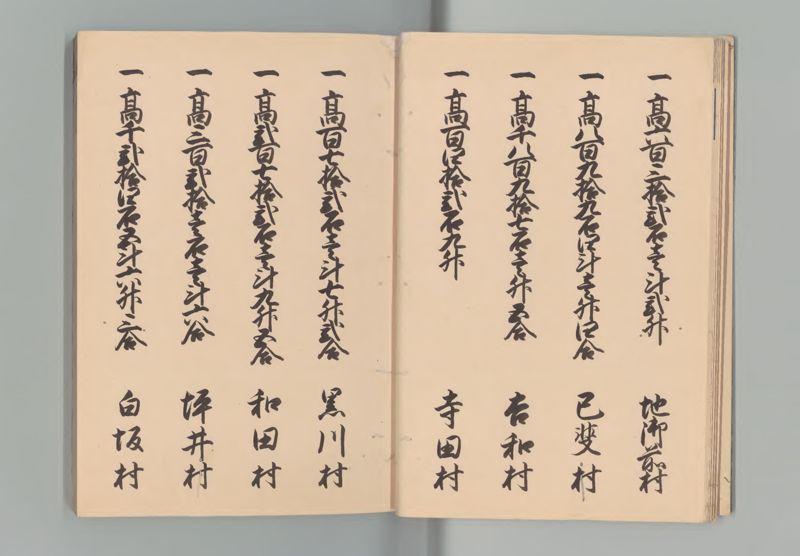 一高五百三拾弐石壱斗弐升 地御前村
一高八百九拾九石四斗壱升四合 己斐村
一高千八百九拾七石壱升五合 吉和村
一高百四拾弐石九升 寺田村
一高百七拾弐石壱斗七升弐合 黒川村
一高弐百七拾弐石壱斗九升五合 和田村
一高三百弐拾壱石壱斗六合 坪井村
一高千弐拾四石五斗六升三合 白坂村